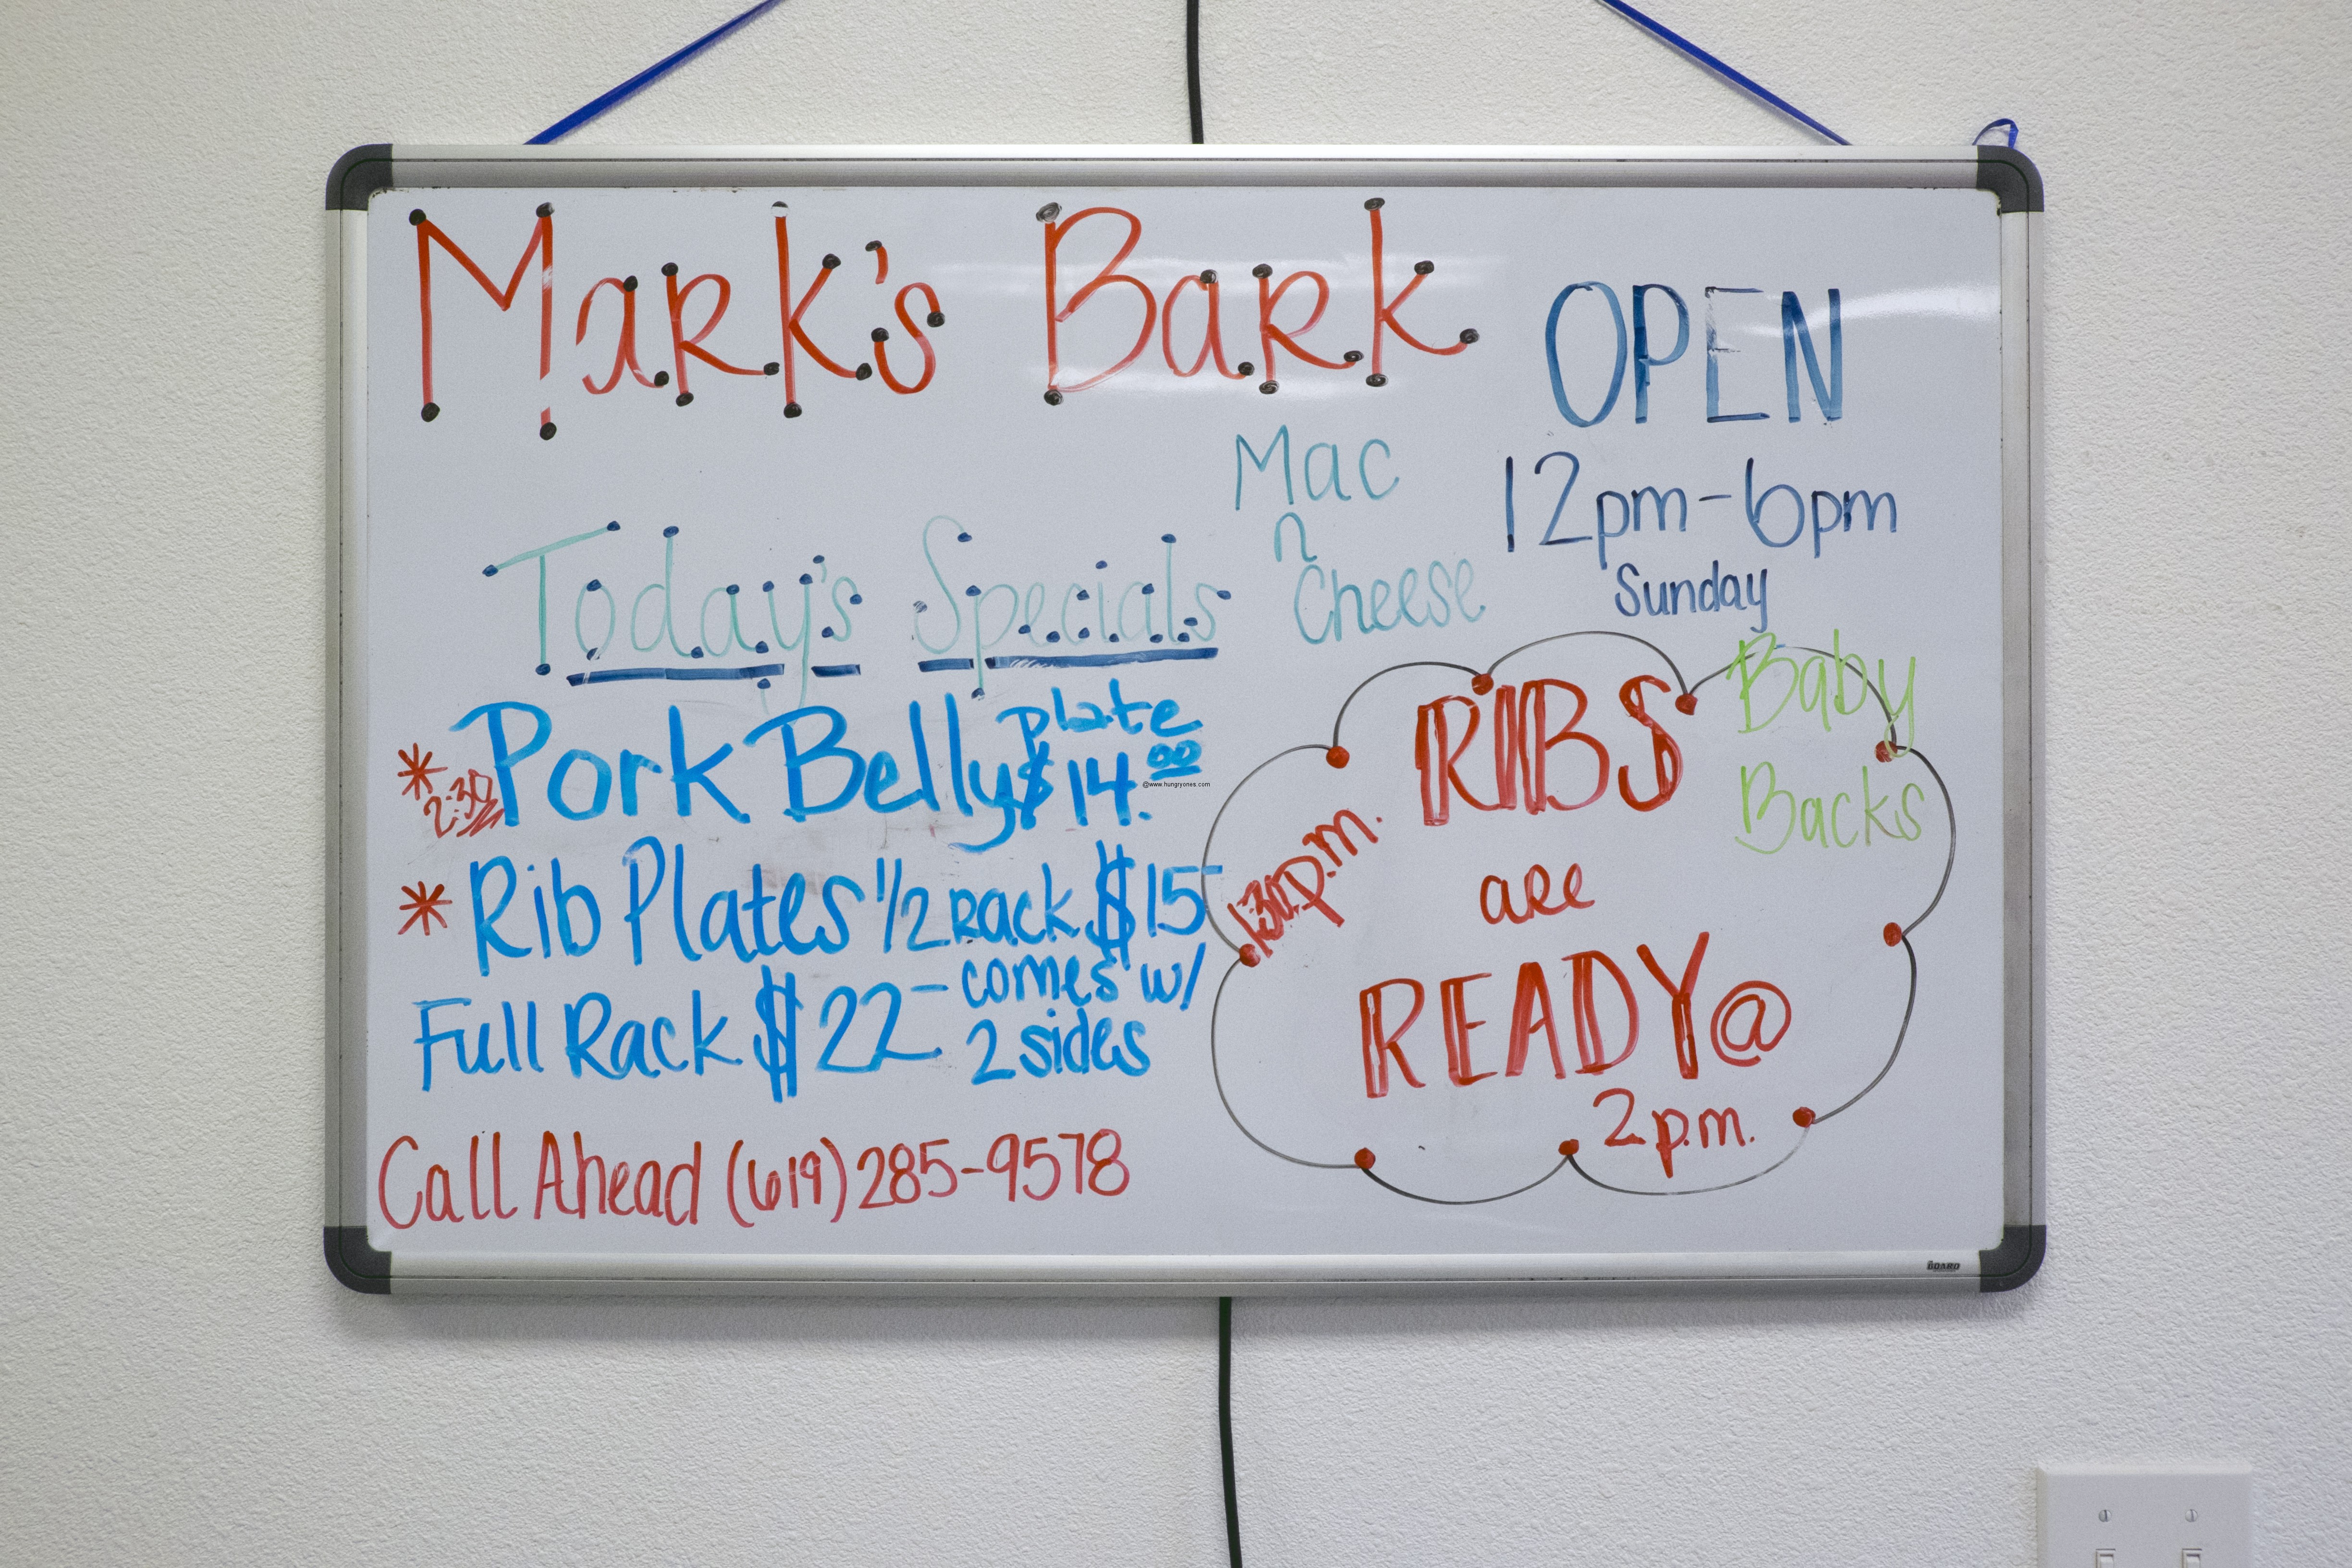 Mark's Bark
OPEN
12pm-6pm
Sunday
Mac
n
Cheese
Today's Specials
* Pork Belly plate $14.00
2:30
@www.hungryones.com
* Rib Plates 1/2 Rack $15-
Full Rack $22- comes w/
2 sides
Call Ahead (619) 285-9578
Baby
Backs
RIBS
1:30p.m.
are
READY@
2p.m.
BOARD